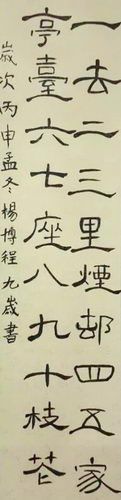 一去二三里煙邨四五家
亭臺六七座八九十枝芲
歲次丙申孟冬楊博程九歲書